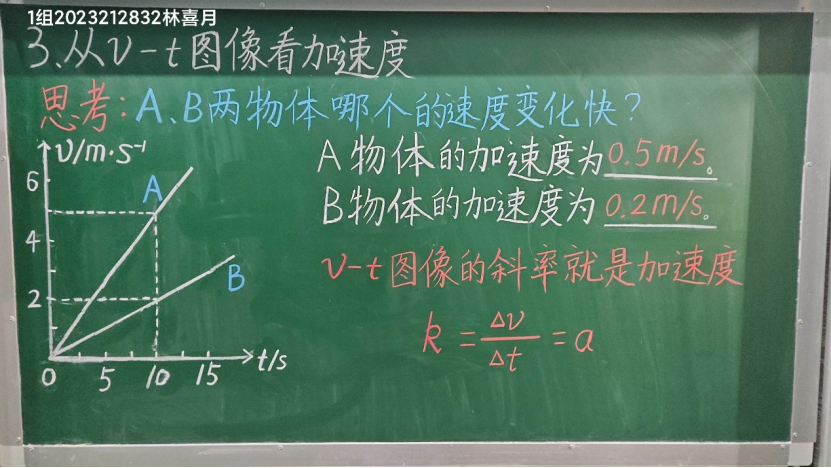 1组2023212832林喜月
3.从v-t图像看加速度
思考:A、B两物体哪个的速度变化快?
A物体的加速度为0.5m/s。
B物体的加速度为0.2m/s。
v-t图像的斜率就是加速度
k=Δv/Δt=a
v/m·s⁻¹
6
4
2
A
B
0 5 10 15 t/s